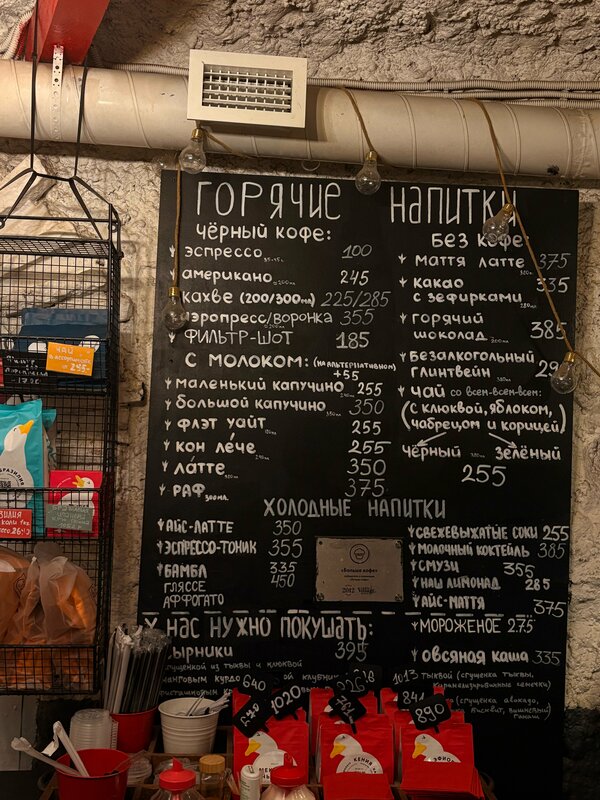 ГОРЯЧИЕ НАПИТКИ
ЧЁРНЫЙ КОФЕ:
ЭСПРЕССО 100
АМЕРИКАНО 245
КАХВЕ (200/300мл) 225/285
АЭРОПРЕСС/ВОРОНКА 355
ФИЛЬТР-ШОТ 185
С МОЛОКОМ: (НА АЛЬТЕРНАТИВНОМ) +55
МАЛЕНЬКИЙ КАПУЧИНО 255
БОЛЬШОЙ КАПУЧИНО 350
ФЛЭТ УАЙТ 255
КОН ЛЕ́ЧЕ 255
ЛА́ТТЕ 350
РАФ 300мл 375
БЕЗ КОФЕ:
МАТТЯ ЛАТТЕ 375
КАКАО 335
С ЗЕФИРКАМИ
ГОРЯЧИЙ
ШОКОЛАД 385
БЕЗАЛКОГОЛЬНЫЙ
ГЛИНТВЕЙН
ЧАЙ СО ВСЕМ-ВСЕМ-ВСЕМ:
(С КЛЮКВОЙ, ЯБЛОКОМ,
ЧАБРЕЦОМ И КОРИЦЕЙ)
ЧЁРНЫЙ ЗЕЛЁНЫЙ
255
ХОЛОДНЫЕ НАПИТКИ
АЙС-ЛАТТЕ 350
ЭСПРЕССО-ТОНИК 355
БАМБЛ 335
ГЛЯССЕ 450
АФФОГАТО
СВЕЖЕВЫЖАТЫЕ СОКИ 255
МОЛОЧНЫЙ КОКТЕЙЛЬ 385
СМУЗИ 355
НАШ ЛИМОНАД 285
АЙС-МАТТЯ 375
МОРОЖЕНОЕ 275
«Больше кофе»
2012 Village
У НАС НУЖНО ПОКУШАТЬ:
СЫРНИКИ 395
ОВСЯНАЯ КАША 335
640
1020
1013
890
ЧАЙ
КЕНИЯ